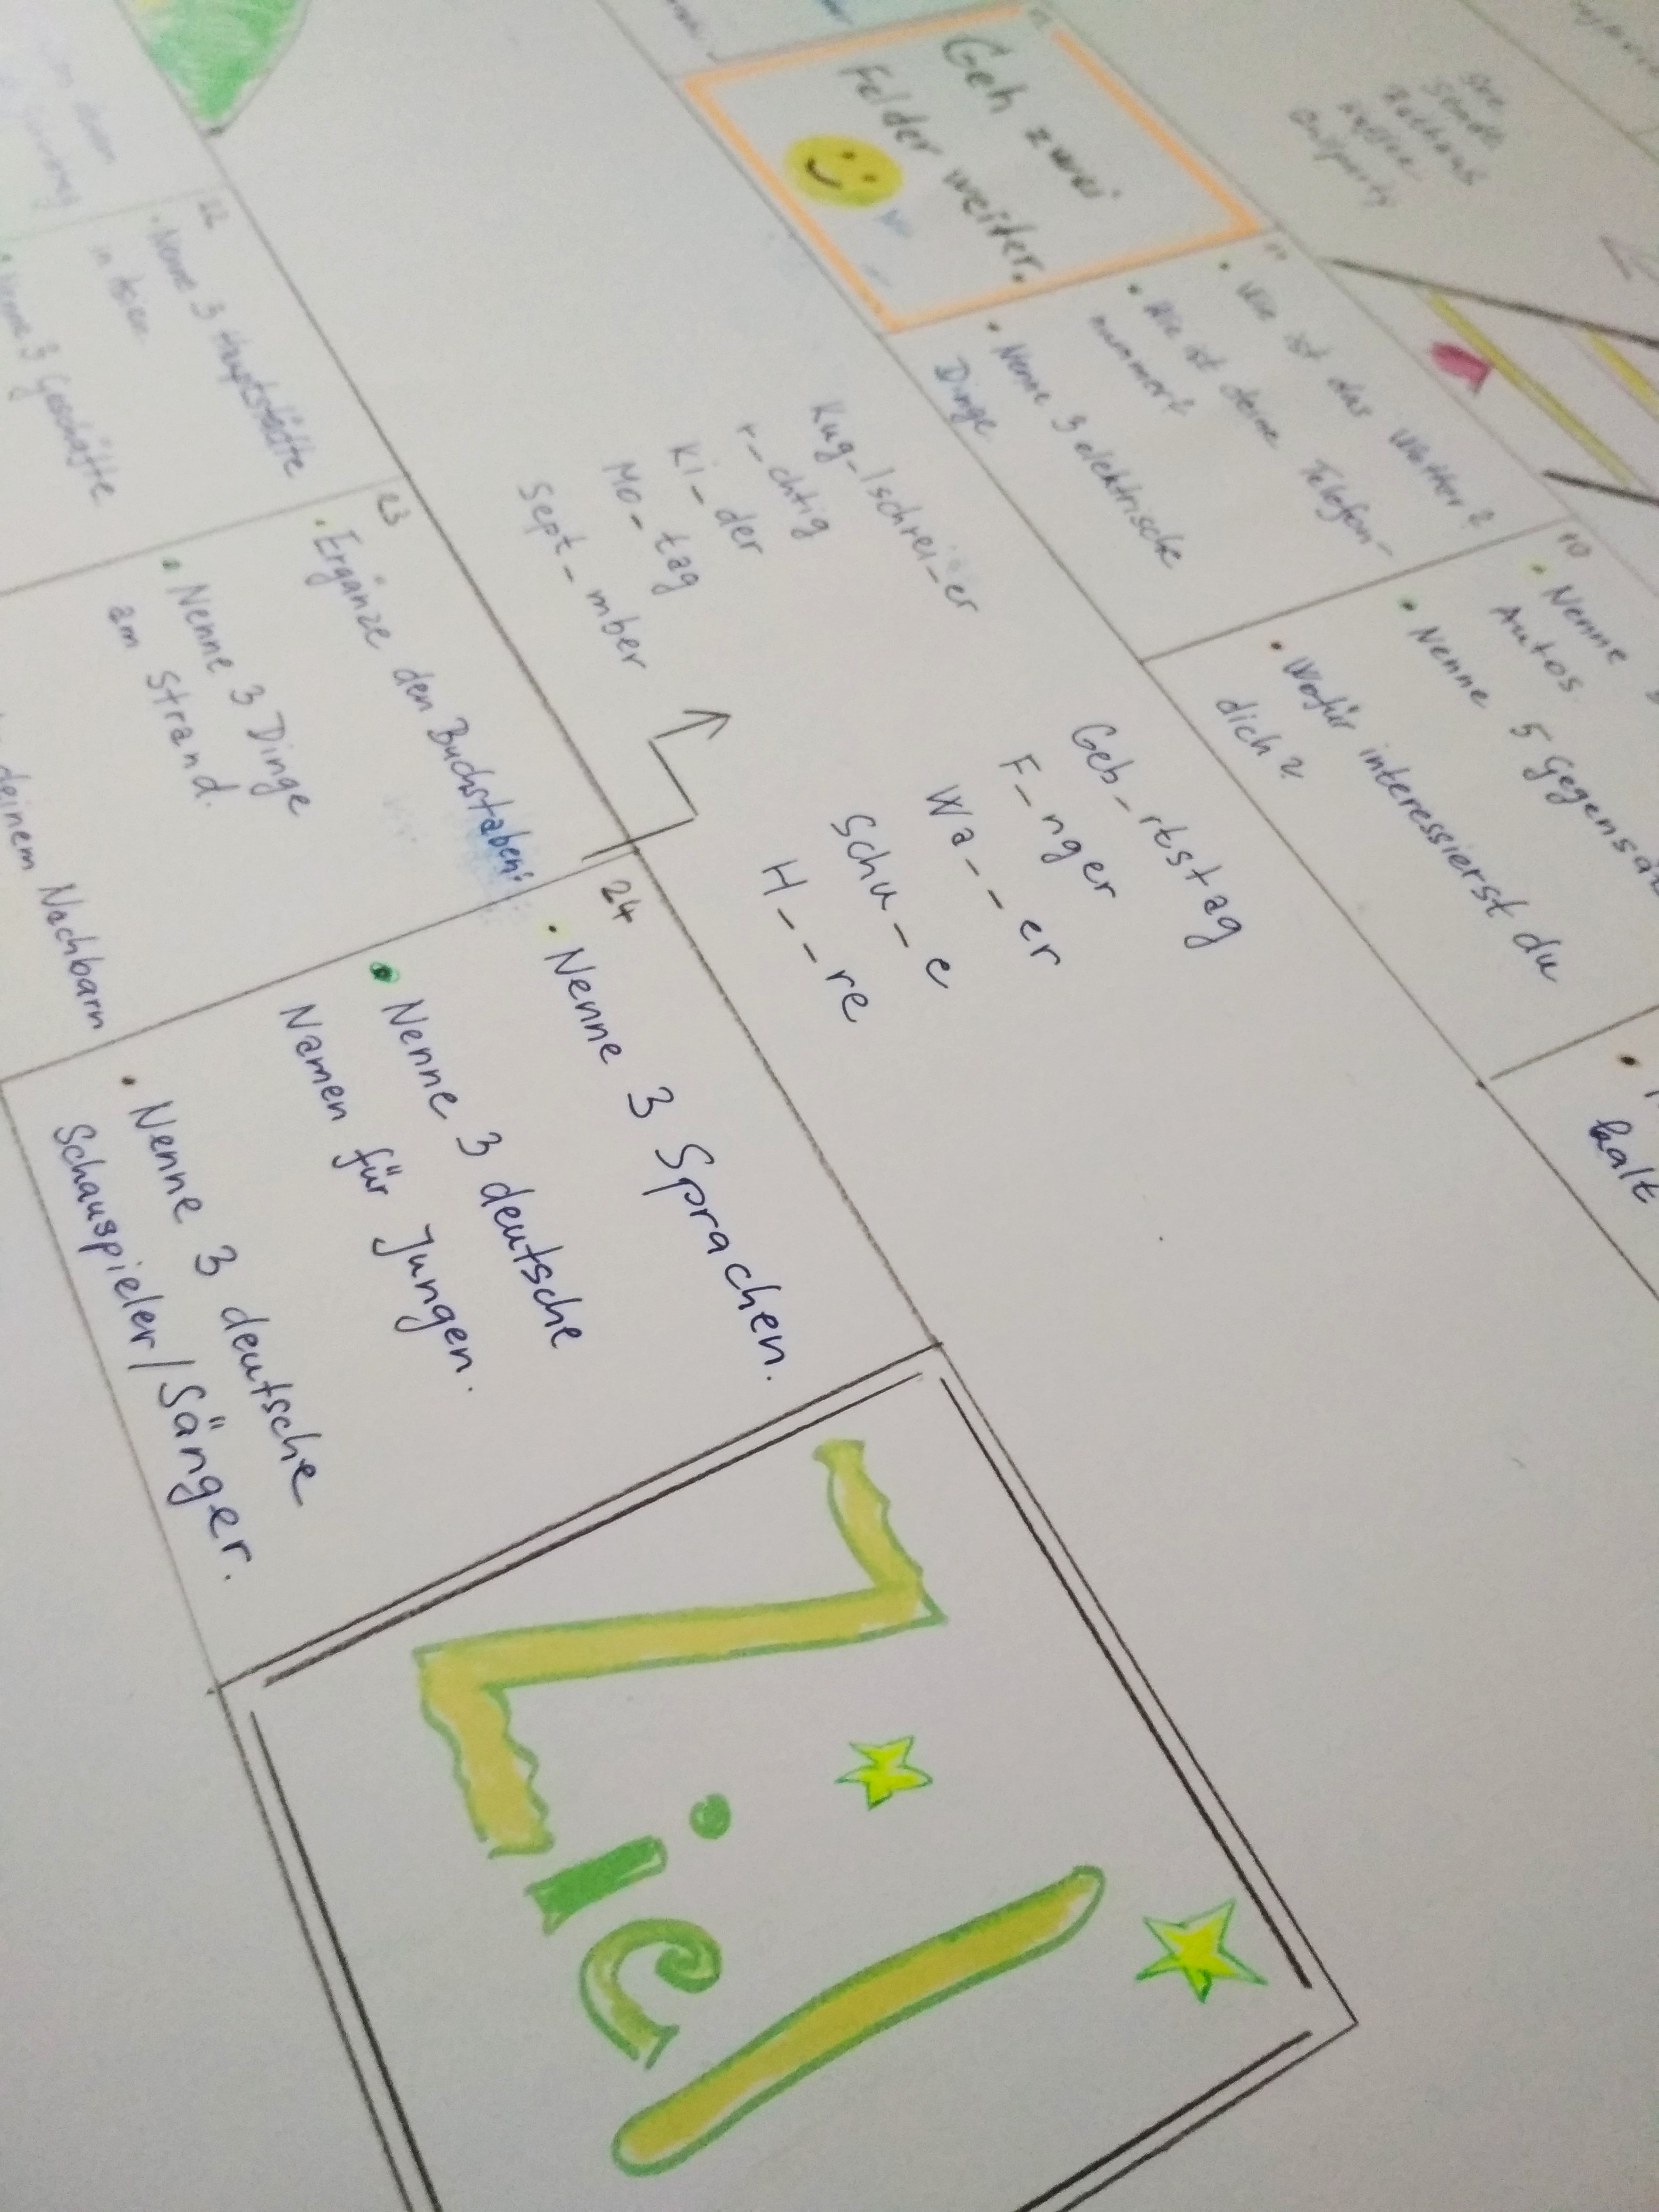 Geh zwei
Felder weiter.
11
• Wie ist das Wetter?
• Wie ist deine Telefon-
nummer?
• Nenne 3 elektrische
Dinge
10
• Nenne
Autos.
• Nenne 5
• Wofür interessierst du
dich?
kalt
Kug_lschrei_er
r_chtig
Ki_der
Mo_tag
Sept_mber
Geb_rtstag
F_nger
Wa__er
Schu_e
H__re
22
• Nenne 3 Hauptstädte
in Asien.
• Nenne 3 Geschäfte
23
• Ergänze den Buchstaben:
• Nenne 3 Dinge
am Strand.
deinem Nachbarn
24
• Nenne 3 Sprachen.
• Nenne 3 deutsche
Namen für Jungen.
• Nenne 3 deutsche
Schauspieler/Sänger.
Ziel